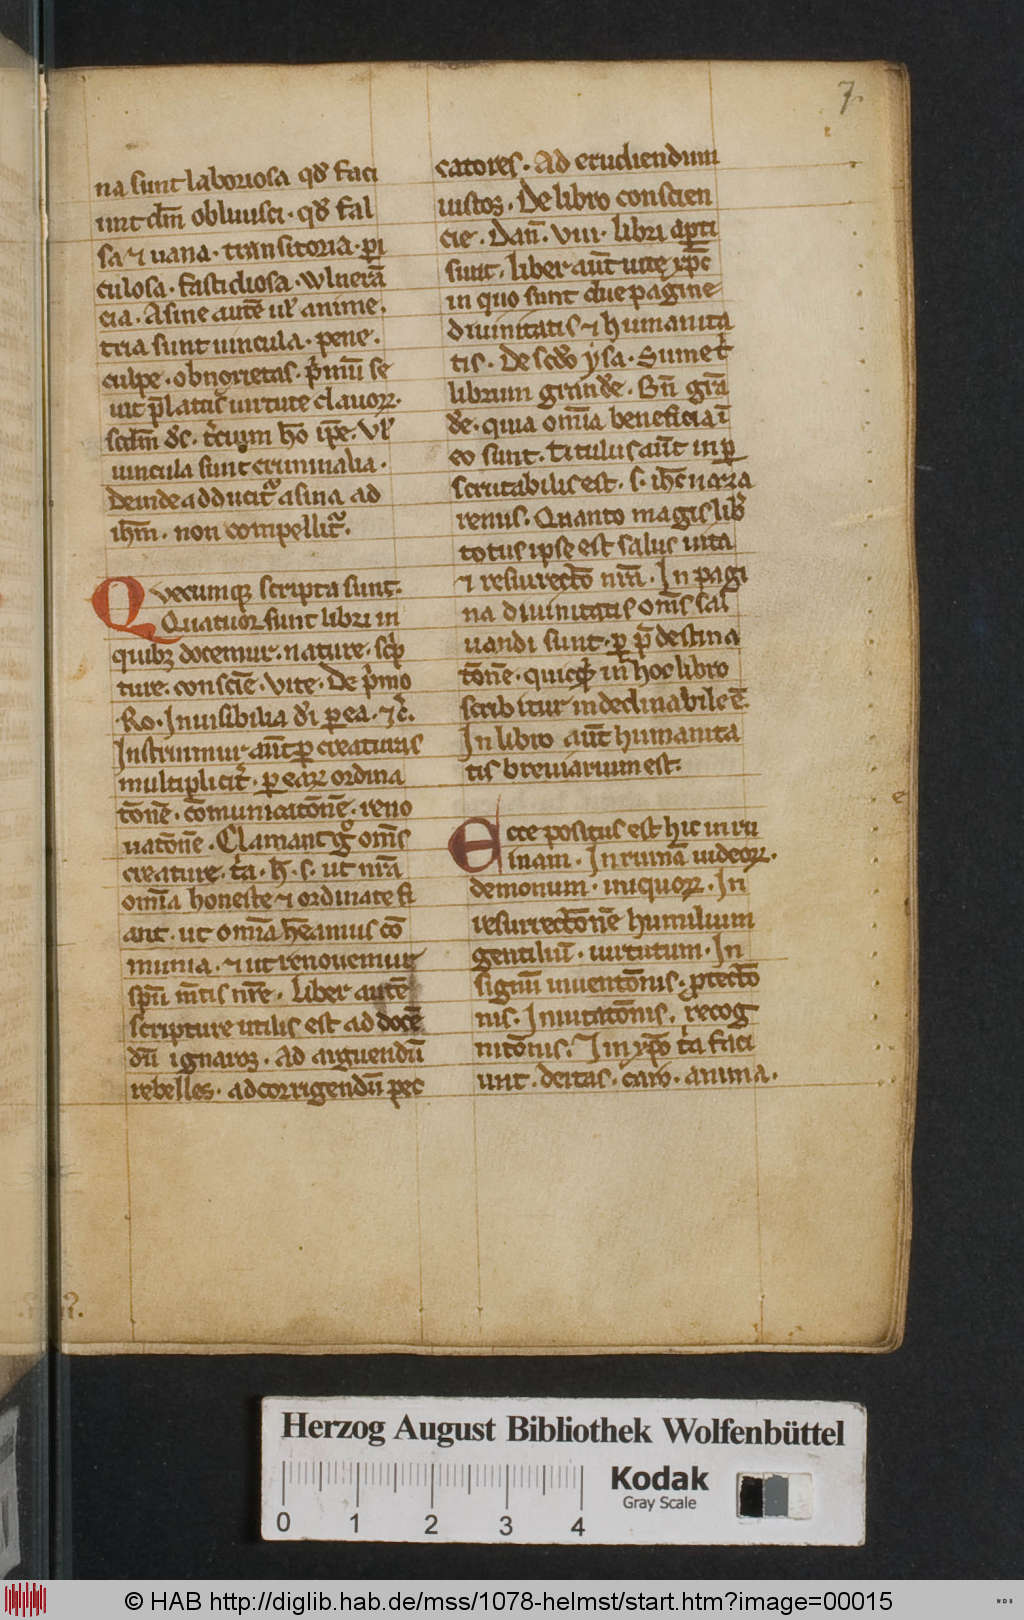 7.
na sunt laboriosa qđ faci
unt dm̄ obliuisci · qđ fal
sa ⁊ uana · transitoria · pi
culosa · fastidiosa · wlnerā
cia · A sine autē ul' anime ·
tria sunt uincula · pene ·
culpe · obnorietas · p'mū se
uit p̄latus uirtute clauoꝝ ·
scdm̄ dc̄ · t'cium ħo ip̄e · Vl'
uincula sunt criminalia ·
Deinde adducit' asina ad
ihm̄ · non compellit' ·
Quecumqꝫ scripta sunt ·
Quatuor sunt libri in
quibꝫ docemur · nature · sc'p
ture · consciē · vite · De p'mo
· Ro · Inuisibilia d'i ꝑ ea · ⁊c̄ ·
Instruimur aūt ꝑ creaturas
multiplicit' · ꝑ eaꝝ ordina
t̄onē · cōmunicat̄onē · reno
uat̄onē · Clamant g° om̄s
creature · t'a · h̄ · s · ut nr̄a
om̄ia honeste ⁊ ordinate fi
ant · ut om̄ia hēamus cō
munia · ⁊ ut renouemur
sp̄u m̄tis nr̄e · Liber autē
scripture utilis est ad docē
dū ignaros · Ad arguendū
rebelles · ad corrigendū pec
catores · Ad erudiendum
iustos · De libro conscien
cie · Dan̄ · viii · libri apti
sunt · liber aūt uite xp̄c
in quo sunt due pagine
diuinitatis ⁊ humanita
tis · De scd̄o ysa · Sume t'
librum grandē · Bn̄ grā
dē · quia om̄ia beneficia ī
eo sunt · Titulus aūt inp
scrutabilis est · s · ihc̄ naza
renus · Quanto magis lib'
totus ipse est salus uita
⁊ resurrectō nr̄a · In pagi
na diuinitatis om̄s sal
uandi sunt · ꝑ p̄destina
t̄onē · quicqͥd in hoc libro
scribitur indeclinabile ē ·
In libro aūt humanita
tis breuiarium est ·
Ecce positus est hic in ru
inam · In ruinā uideoꝝ ·
demonum · iniquoꝝ · In
resurrect̄onē humilium
gentiliū · uirtutum · In
signū inuent̄onis · protectō
nis · Inuitat̄onis · recog
nit̄onis · In xp̄o t'a faci
unt · deitas · caro · anima ·
Herzog August Bibliothek Wolfenbüttel
Kodak
Gray Scale
0 1 2 3 4
© HAB http://diglib.hab.de/mss/1078-helmst/start.htm?image=00015